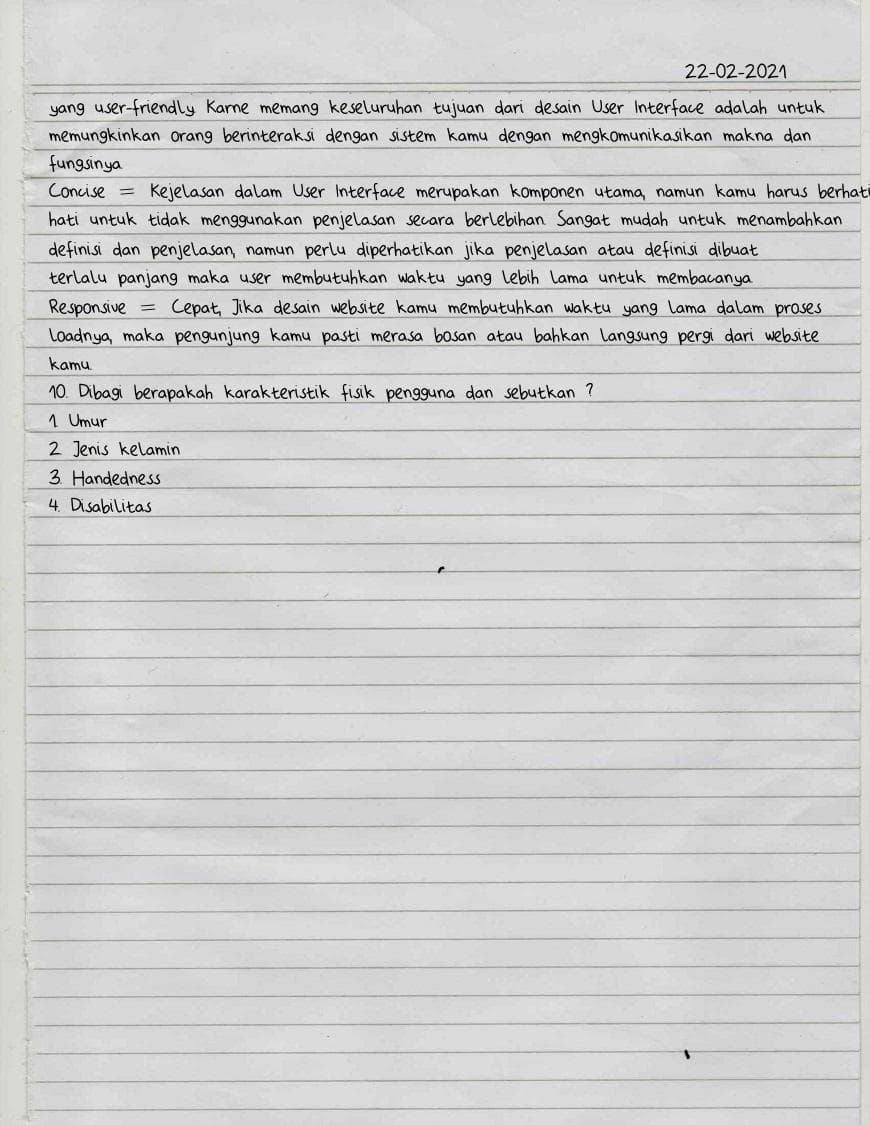 22-02-2021
yang user-friendly Karne memang keseluruhan tujuan dari desain User Interface adalah untuk
memungkinkan orang berinteraksi dengan sistem kamu dengan mengkomunikasikan makna dan
fungsinya
Concise = Kejelasan dalam User Interface merupakan komponen utama, namun kamu harus berhati
hati untuk tidak menggunakan penjelasan secara berlebihan. Sangat mudah untuk menambahkan
definisi dan penjelasan, namun perlu diperhatikan jika penjelasan atau definisi dibuat
terlalu panjang maka user membutuhkan waktu yang lebih lama untuk membacanya
Responsive = Cepat, Jika desain website kamu membutuhkan waktu yang lama dalam proses
loadnya, maka pengunjung kamu pasti merasa bosan atau bahkan langsung pergi dari website
kamu.
10. Dibagi berapakah karakteristik fisik pengguna dan sebutkan ?
1 Umur
2 Jenis kelamin
3. Handedness
4. Disabilitas